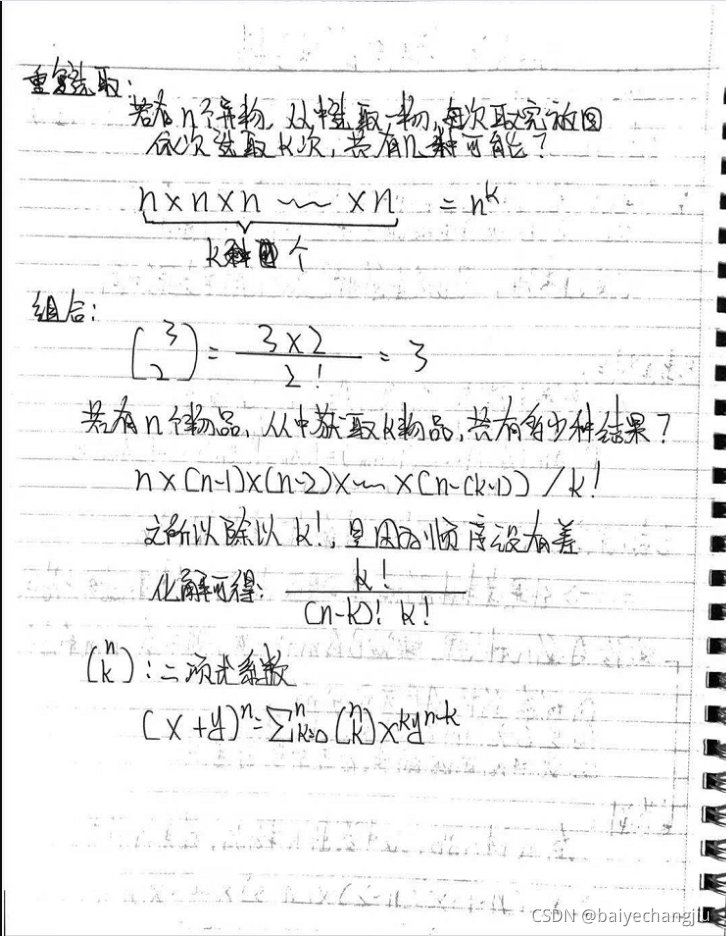 重复选取:
若有n个异物,从中选取一物,每次取完放回
依次选取k次,共有几种可能?
n×n×n ～ ×n = n^k
k 个
组合:
(3 2) = 3×2 / 2! = 3
若有n个物品,从中获取k物品,共有多少种结果?
n×(n-1)×(n-2)×～×(n-(k-1)) / k!
之所以除以k!,是因为顺序没有差
化解可得: k! / (n-k)! k!
(n k):二项式系数
(x+y)^n = ∑_{k=0}^n (n k) x^k y^{n-k}
CSDN @baiyechangjiu